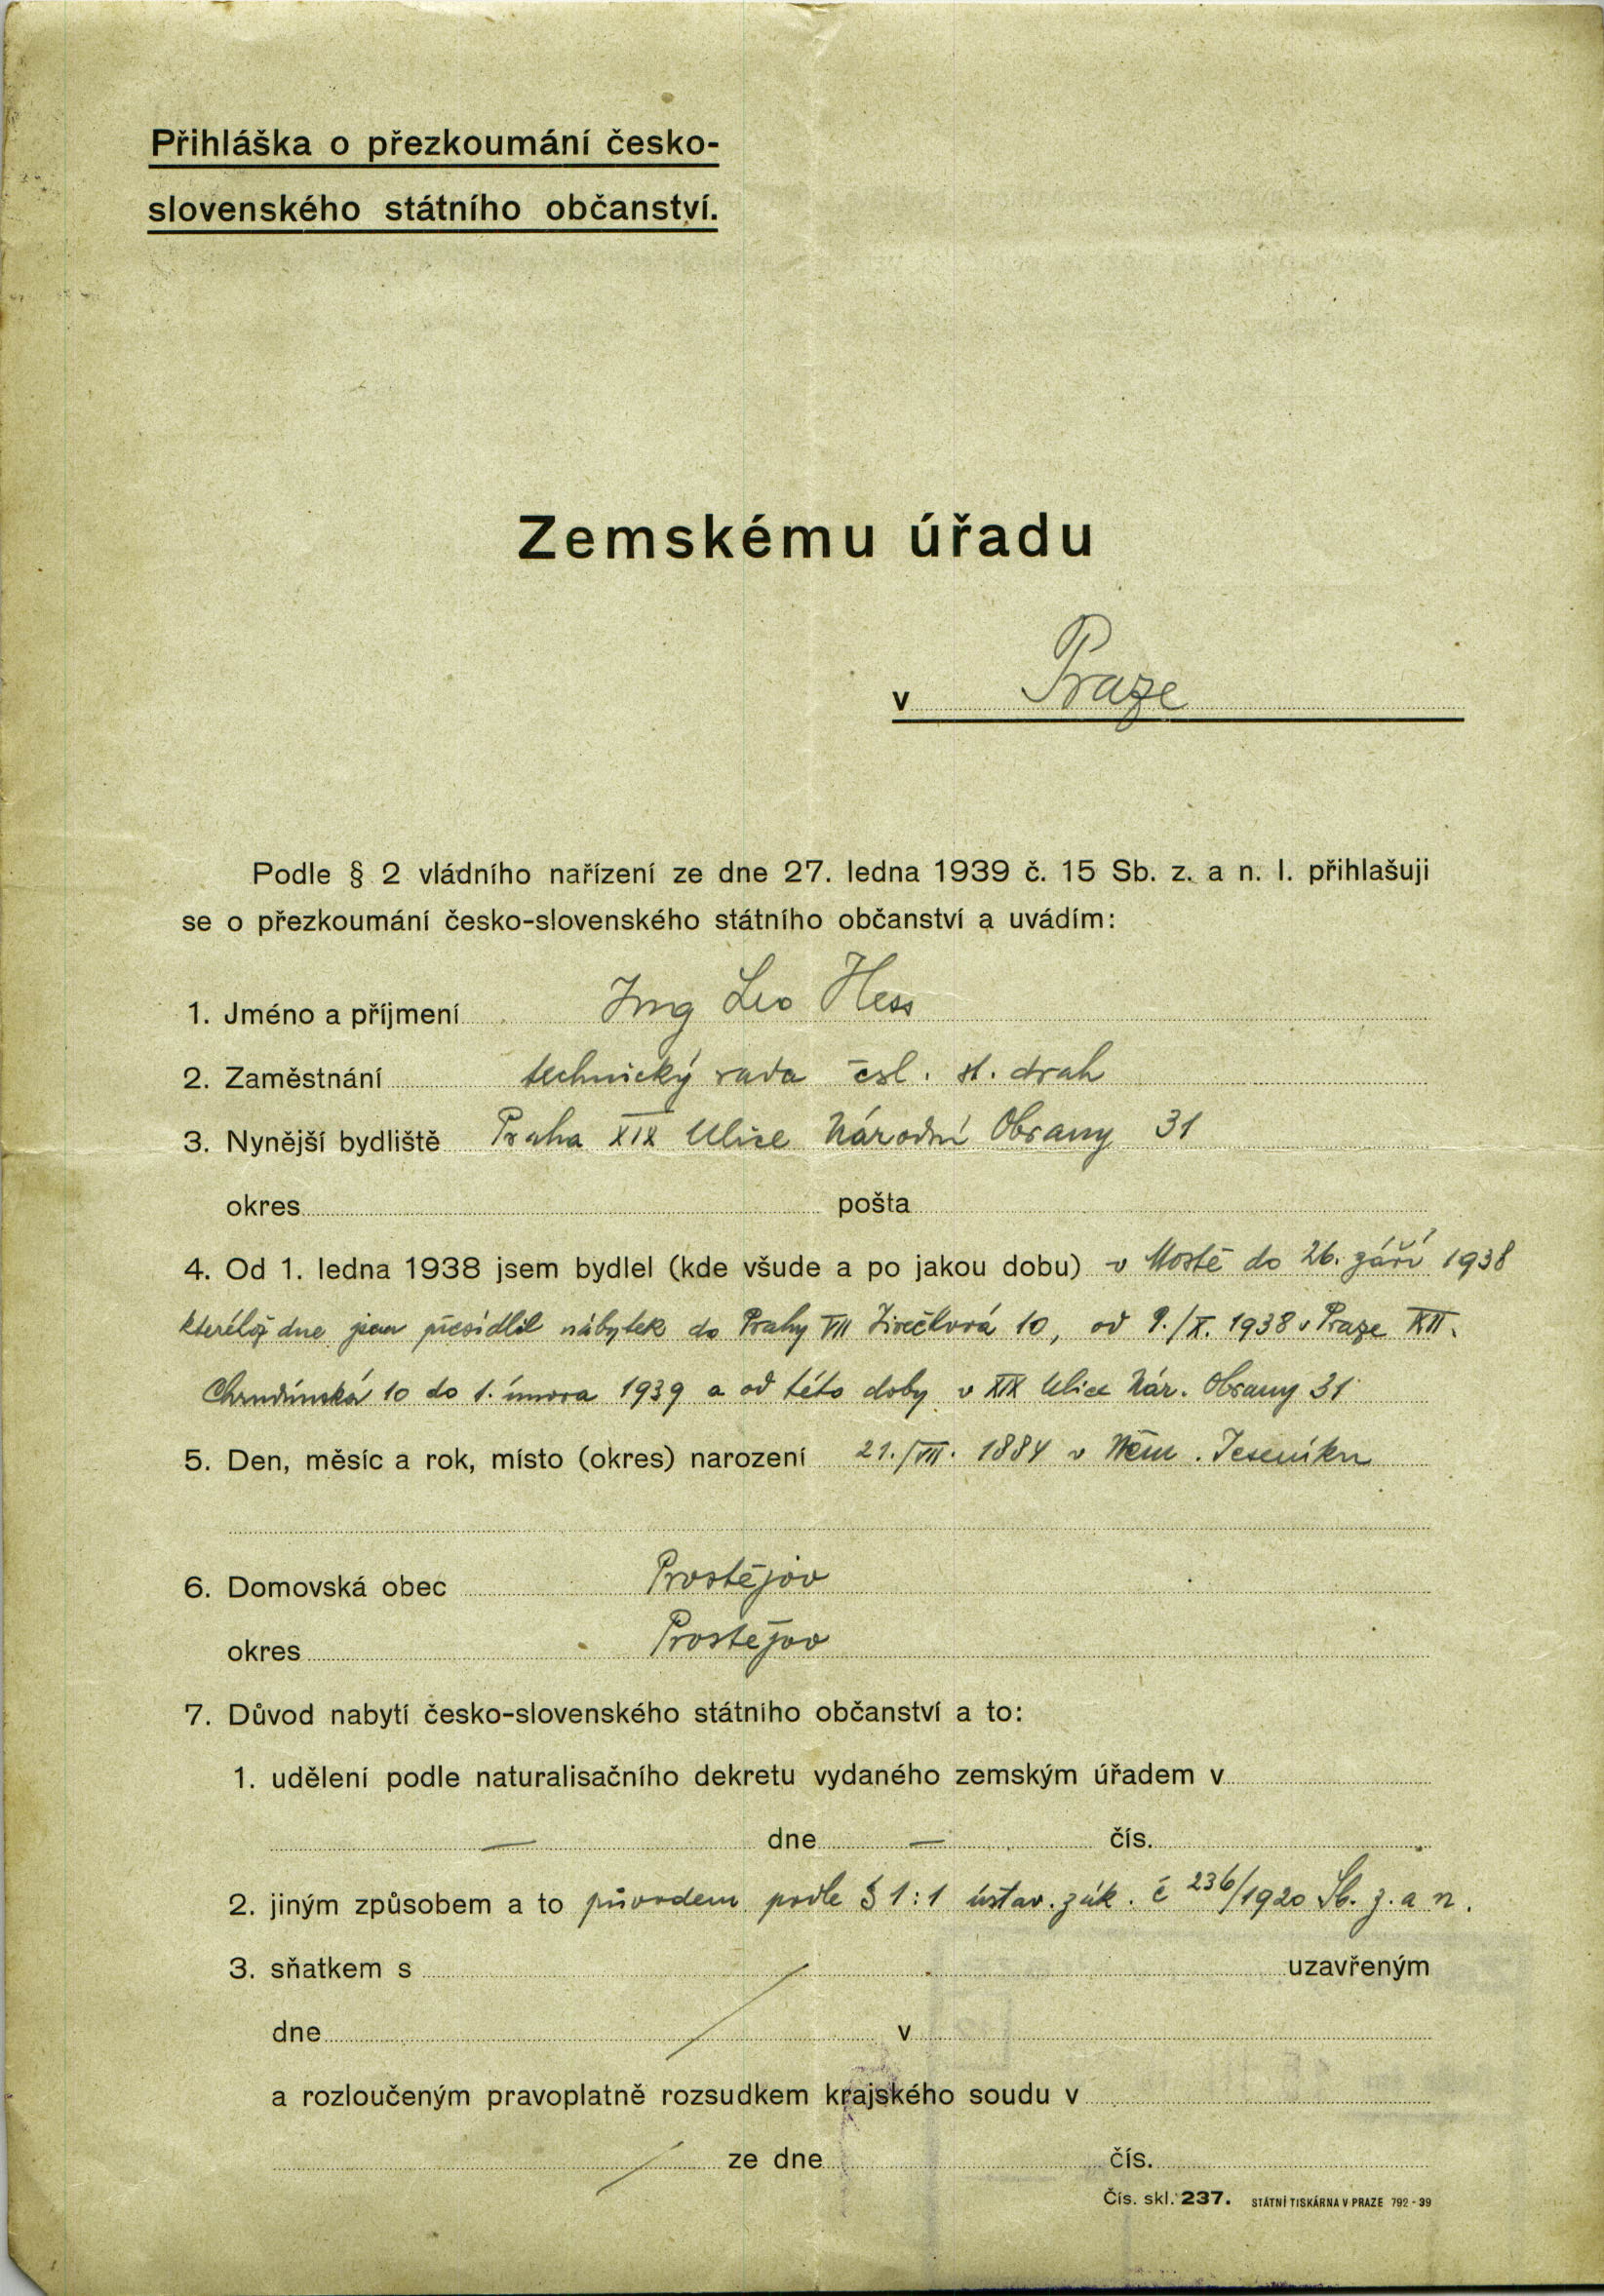 Přihláška o přezkoumání česko-
slovenského státního občanství.
Zemskému úřadu
v Praze
Podle § 2 vládního nařízení ze dne 27. ledna 1939 č. 15 Sb. z. a n. I. přihlašuji
se o přezkoumání česko-slovenského státního občanství a uvádím:
1. Jméno a příjmení Ing Leo Hess
2. Zaměstnání technický rada čsl. st. drah
3. Nynější bydliště Praha XIX Ulice Národní Obrany 31
okres pošta
4. Od 1. ledna 1938 jsem bydlel (kde všude a po jakou dobu) v Mostě do 26. září 1938
kteréhož dne jsem přesídlil nábytek do Prahy VII Jirečkova 10, od 9./X. 1938 v Praze XII.
Chrudimská 10 do 1. února 1939 a od této doby v XIX Ulice Nár. Obrany 31
5. Den, měsíc a rok, místo (okres) narození 21./VII. 1884 v Něm. Jeseníku
6. Domovská obec Prostějov
okres Prostějov
7. Důvod nabytí česko-slovenského státního občanství a to:
1. udělení podle naturalisačního dekretu vydaného zemským úřadem v
— dne — čís.
2. jiným způsobem a to původem podle § 1:1 ústav. zák. č 236/1920 Sb. z. a n.
3. sňatkem s uzavřeným
dne v
a rozloučeným pravoplatně rozsudkem krajského soudu v
ze dne čís.
Čís. skl. 237. STÁTNÍ TISKÁRNA V PRAZE 792-39